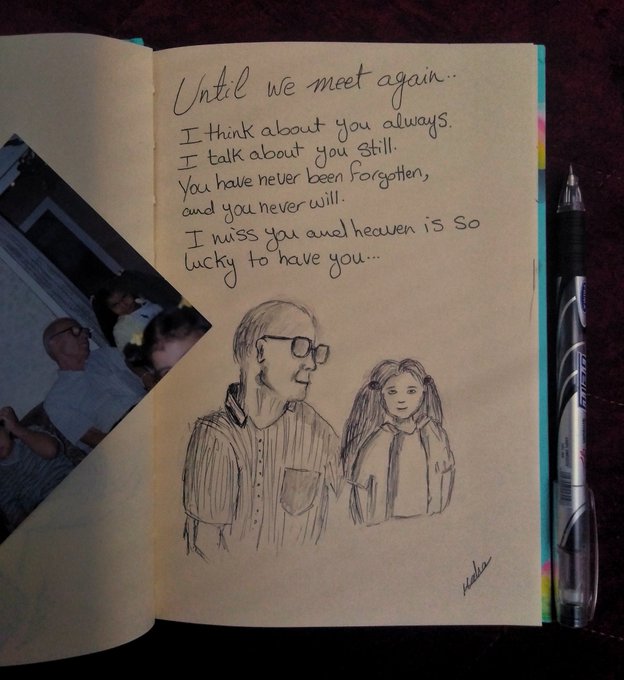 Until we meet again..
I think about you always.
I talk about you still.
You have never been forgotten,
and you never will.
I miss you and heaven is so
lucky to have you...